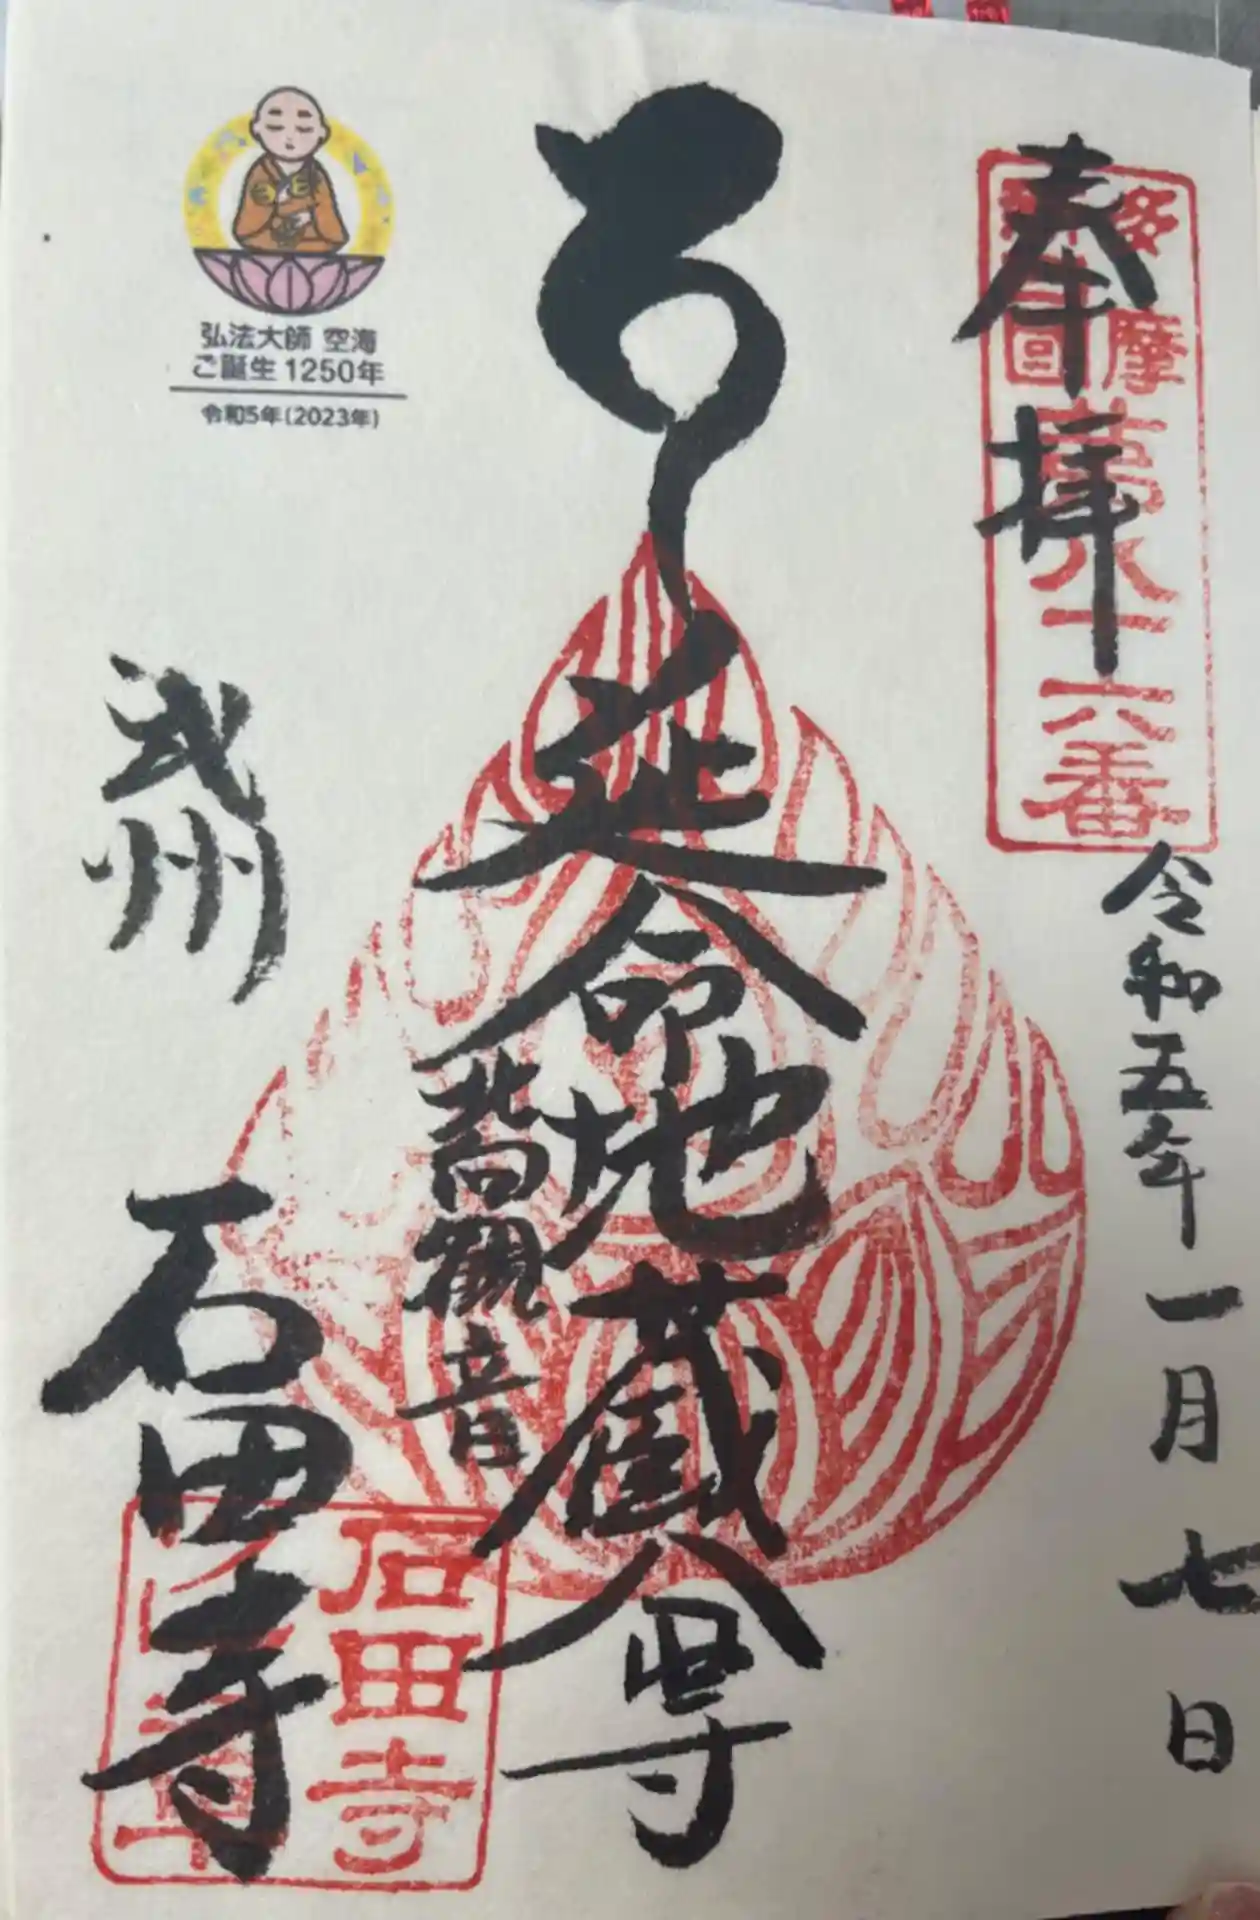 奉拝
多摩四国第八十六番
令和五年一月七日
延命地蔵尊
北向観音
弘法大師 空海
ご誕生1250年
令和5年(2023年)
武州
石田寺
石田寺